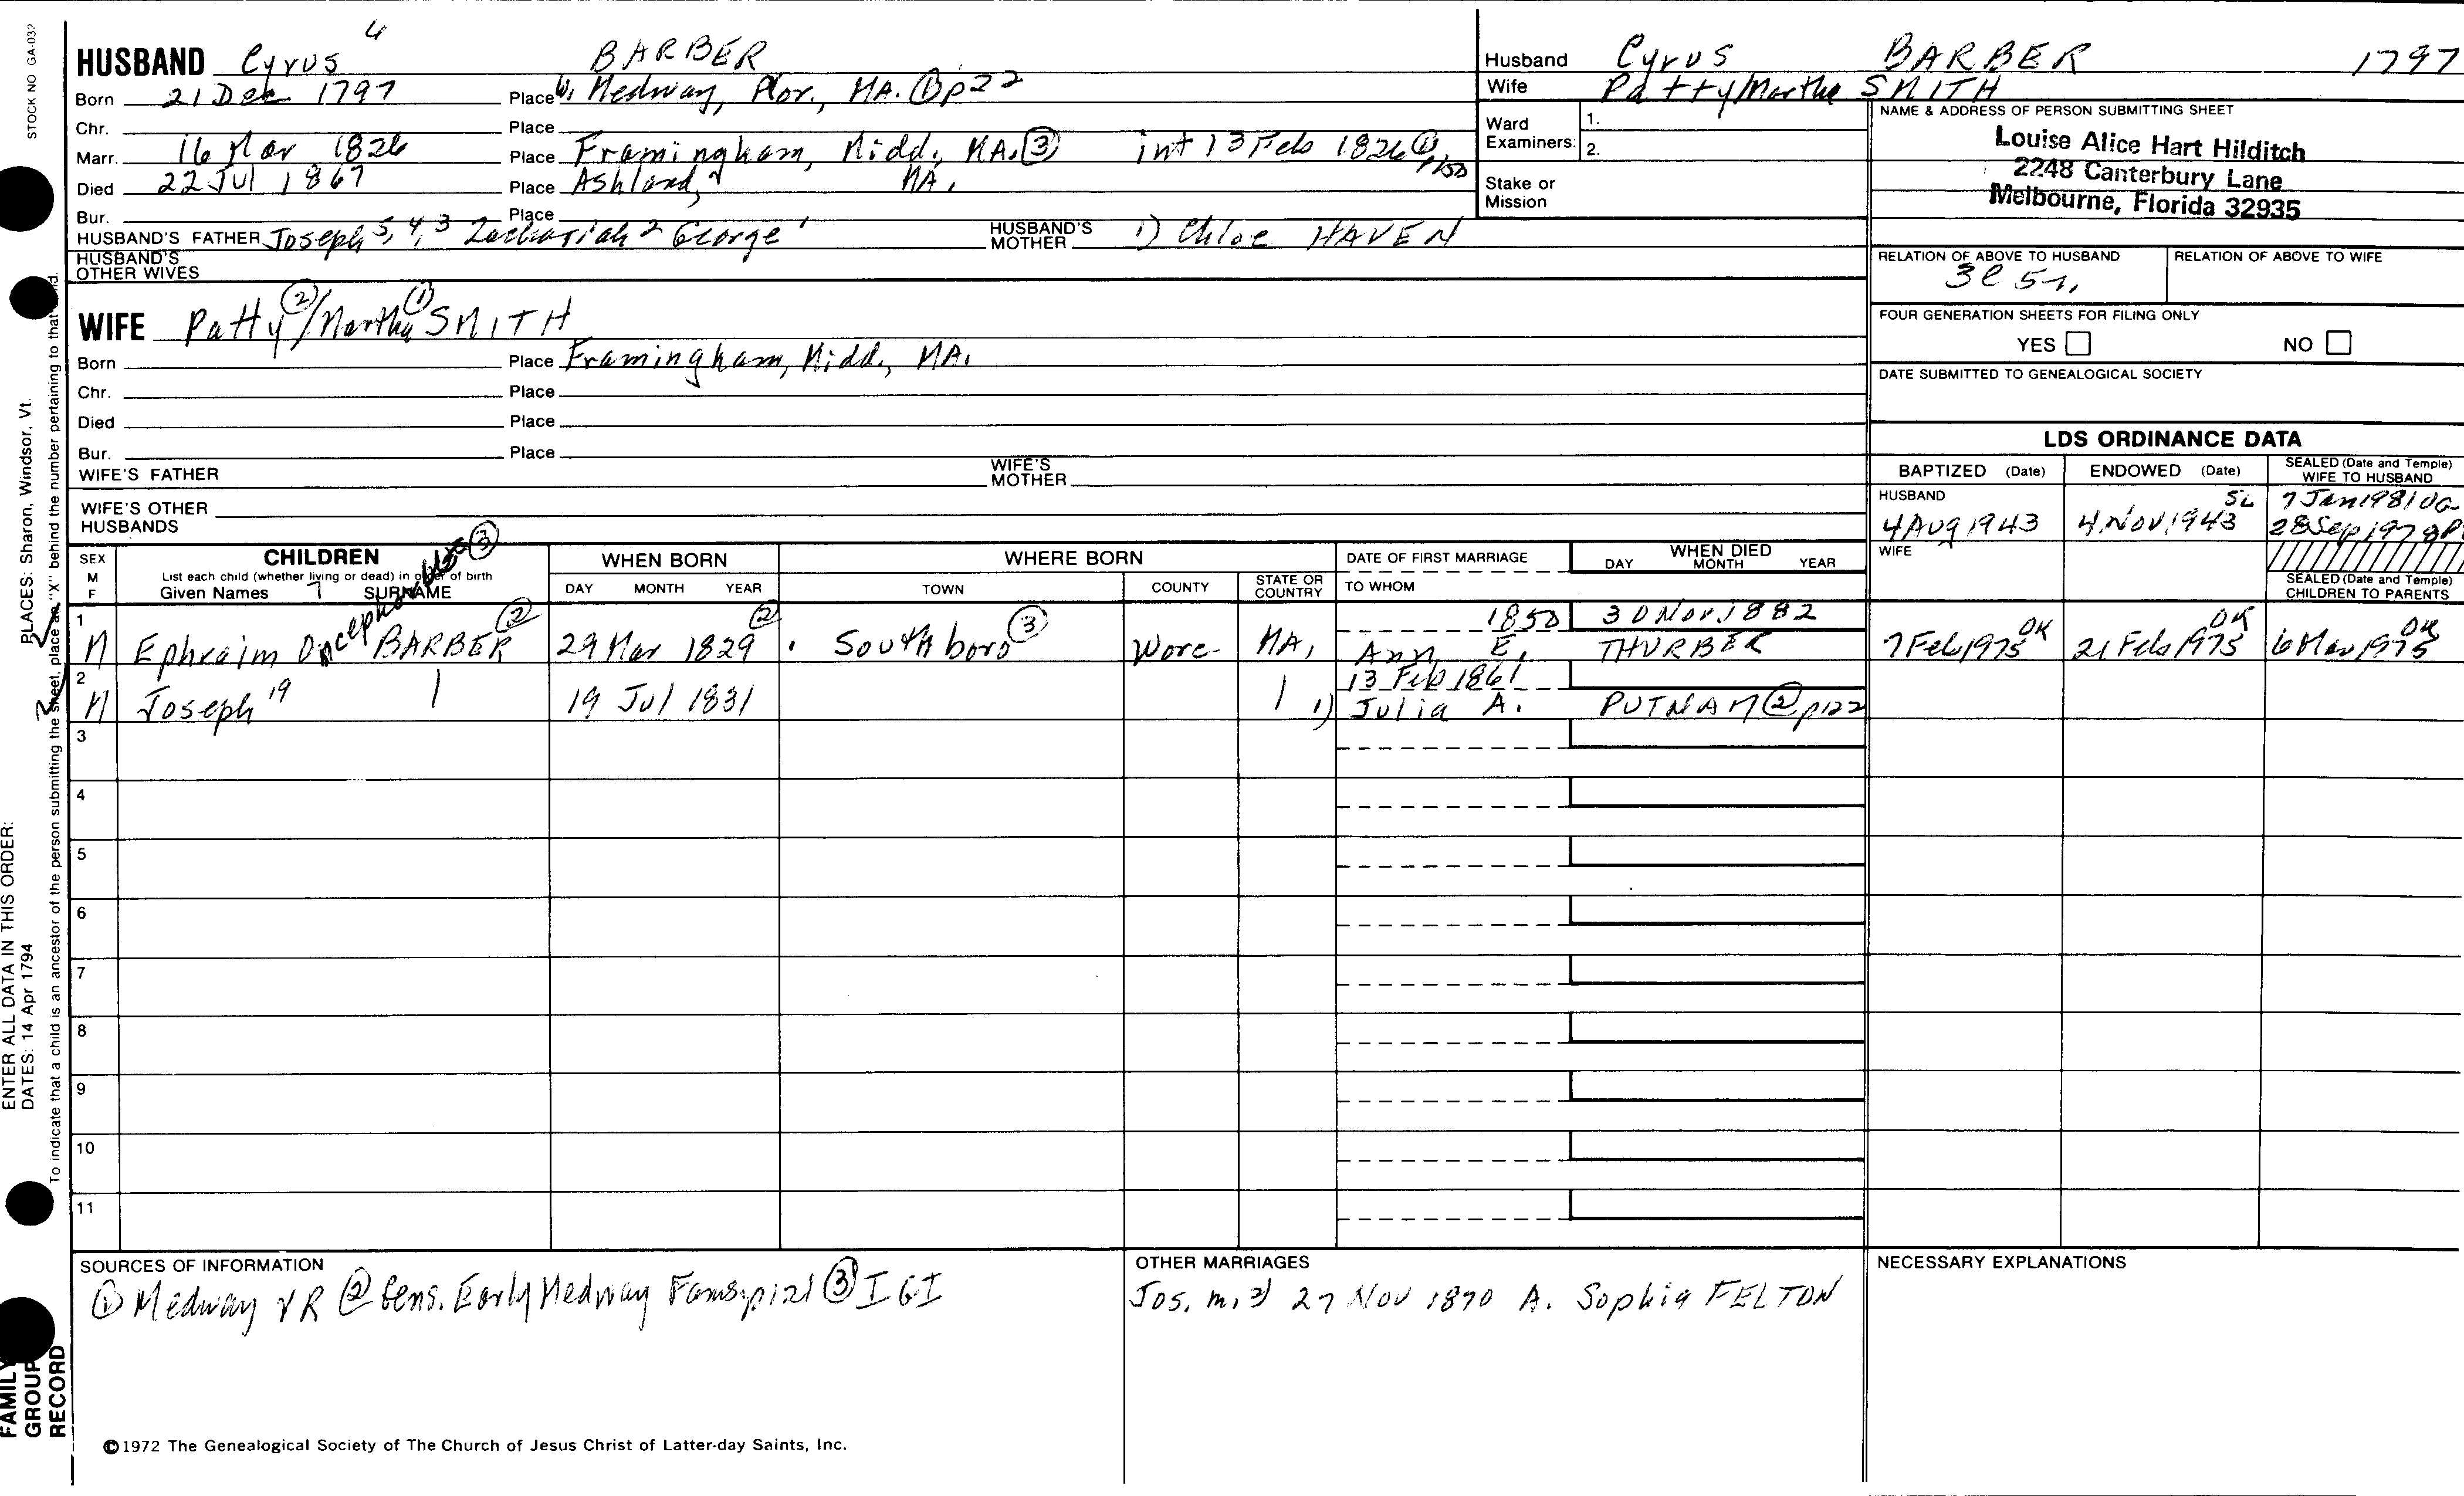 STOCK NO GA-032
4
HUSBAND Cyrus BARBER
Born 21 Dec 1797 Place W. Medway, Nor., MA. ① p22
Chr. Place
Marr. 16 Mar 1826 Place Framingham, Midd., MA. ③ int 13 Feb 1826 ① p150
Died 22 Jul 1867 Place Ashland, MA.
Bur. Place
HUSBAND'S FATHER Joseph 5, 4, 3 Zachariah 2 George 1 HUSBAND'S MOTHER 1) Chloe HAVEN
HUSBAND'S OTHER WIVES
WIFE Patty ② / Martha ① SMITH
Born Place Framingham, Midd., MA.
Chr. Place
Died Place
Bur. Place
WIFE'S FATHER WIFE'S MOTHER
WIFE'S OTHER HUSBANDS
Husband Cyrus BARBER 1797
Wife Patty/Martha SMITH
Ward Examiners: 1.
2.
Stake or Mission
NAME & ADDRESS OF PERSON SUBMITTING SHEET
Louise Alice Hart Hilditch
2248 Canterbury Lane
Melbourne, Florida 32935
RELATION OF ABOVE TO HUSBAND RELATION OF ABOVE TO WIFE
3C 5r.
FOUR GENERATION SHEETS FOR FILING ONLY
YES NO
DATE SUBMITTED TO GENEALOGICAL SOCIETY
LDS ORDINANCE DATA
BAPTIZED (Date) ENDOWED (Date) SEALED (Date and Temple) WIFE TO HUSBAND
HUSBAND 4 Aug 1943 4 Nov 1943 SL 7 Jan 1981 OG
28 Sep 1978
WIFE
SEALED (Date and Temple) CHILDREN TO PARENTS
SEX M F
CHILDREN
List each child (whether living or dead) in order of birth
Given Names SURNAME
WHEN BORN
DAY MONTH YEAR
WHERE BORN
TOWN COUNTY STATE OR COUNTRY
DATE OF FIRST MARRIAGE
TO WHOM
WHEN DIED
DAY MONTH YEAR
1 M Ephraim Onecephorables ③ BARBER ② 29 Mar 1829 ② Southboro ③ Worc- MA, 1850 30 Nov. 1882
Ann E. THURBER 7 Feb 1975 OK 21 Feb 1975 OK 6 Mar 1975 OK
2 M Joseph 19 19 Jul 1831 13 Feb 1861
1) Julia A. PUTNAM ② p122
3
4
5
6
7
8
9
10
11
SOURCES OF INFORMATION
① Medway VR ② Gens. Early Medway Fams. p121 ③ IGI
OTHER MARRIAGES
Jos. m. 2) 27 Nov 1870 A. Sophia FELTON
NECESSARY EXPLANATIONS
©1972 The Genealogical Society of The Church of Jesus Christ of Latter-day Saints, Inc.
ENTER ALL DATA IN THIS ORDER:
DATES: 14 Apr 1794 PLACES: Sharon, Windsor, Vt.
To indicate that a child is an ancestor of the person submitting the sheet, place an "X" behind the number pertaining to that
FAMILY
GROUP
RECORD